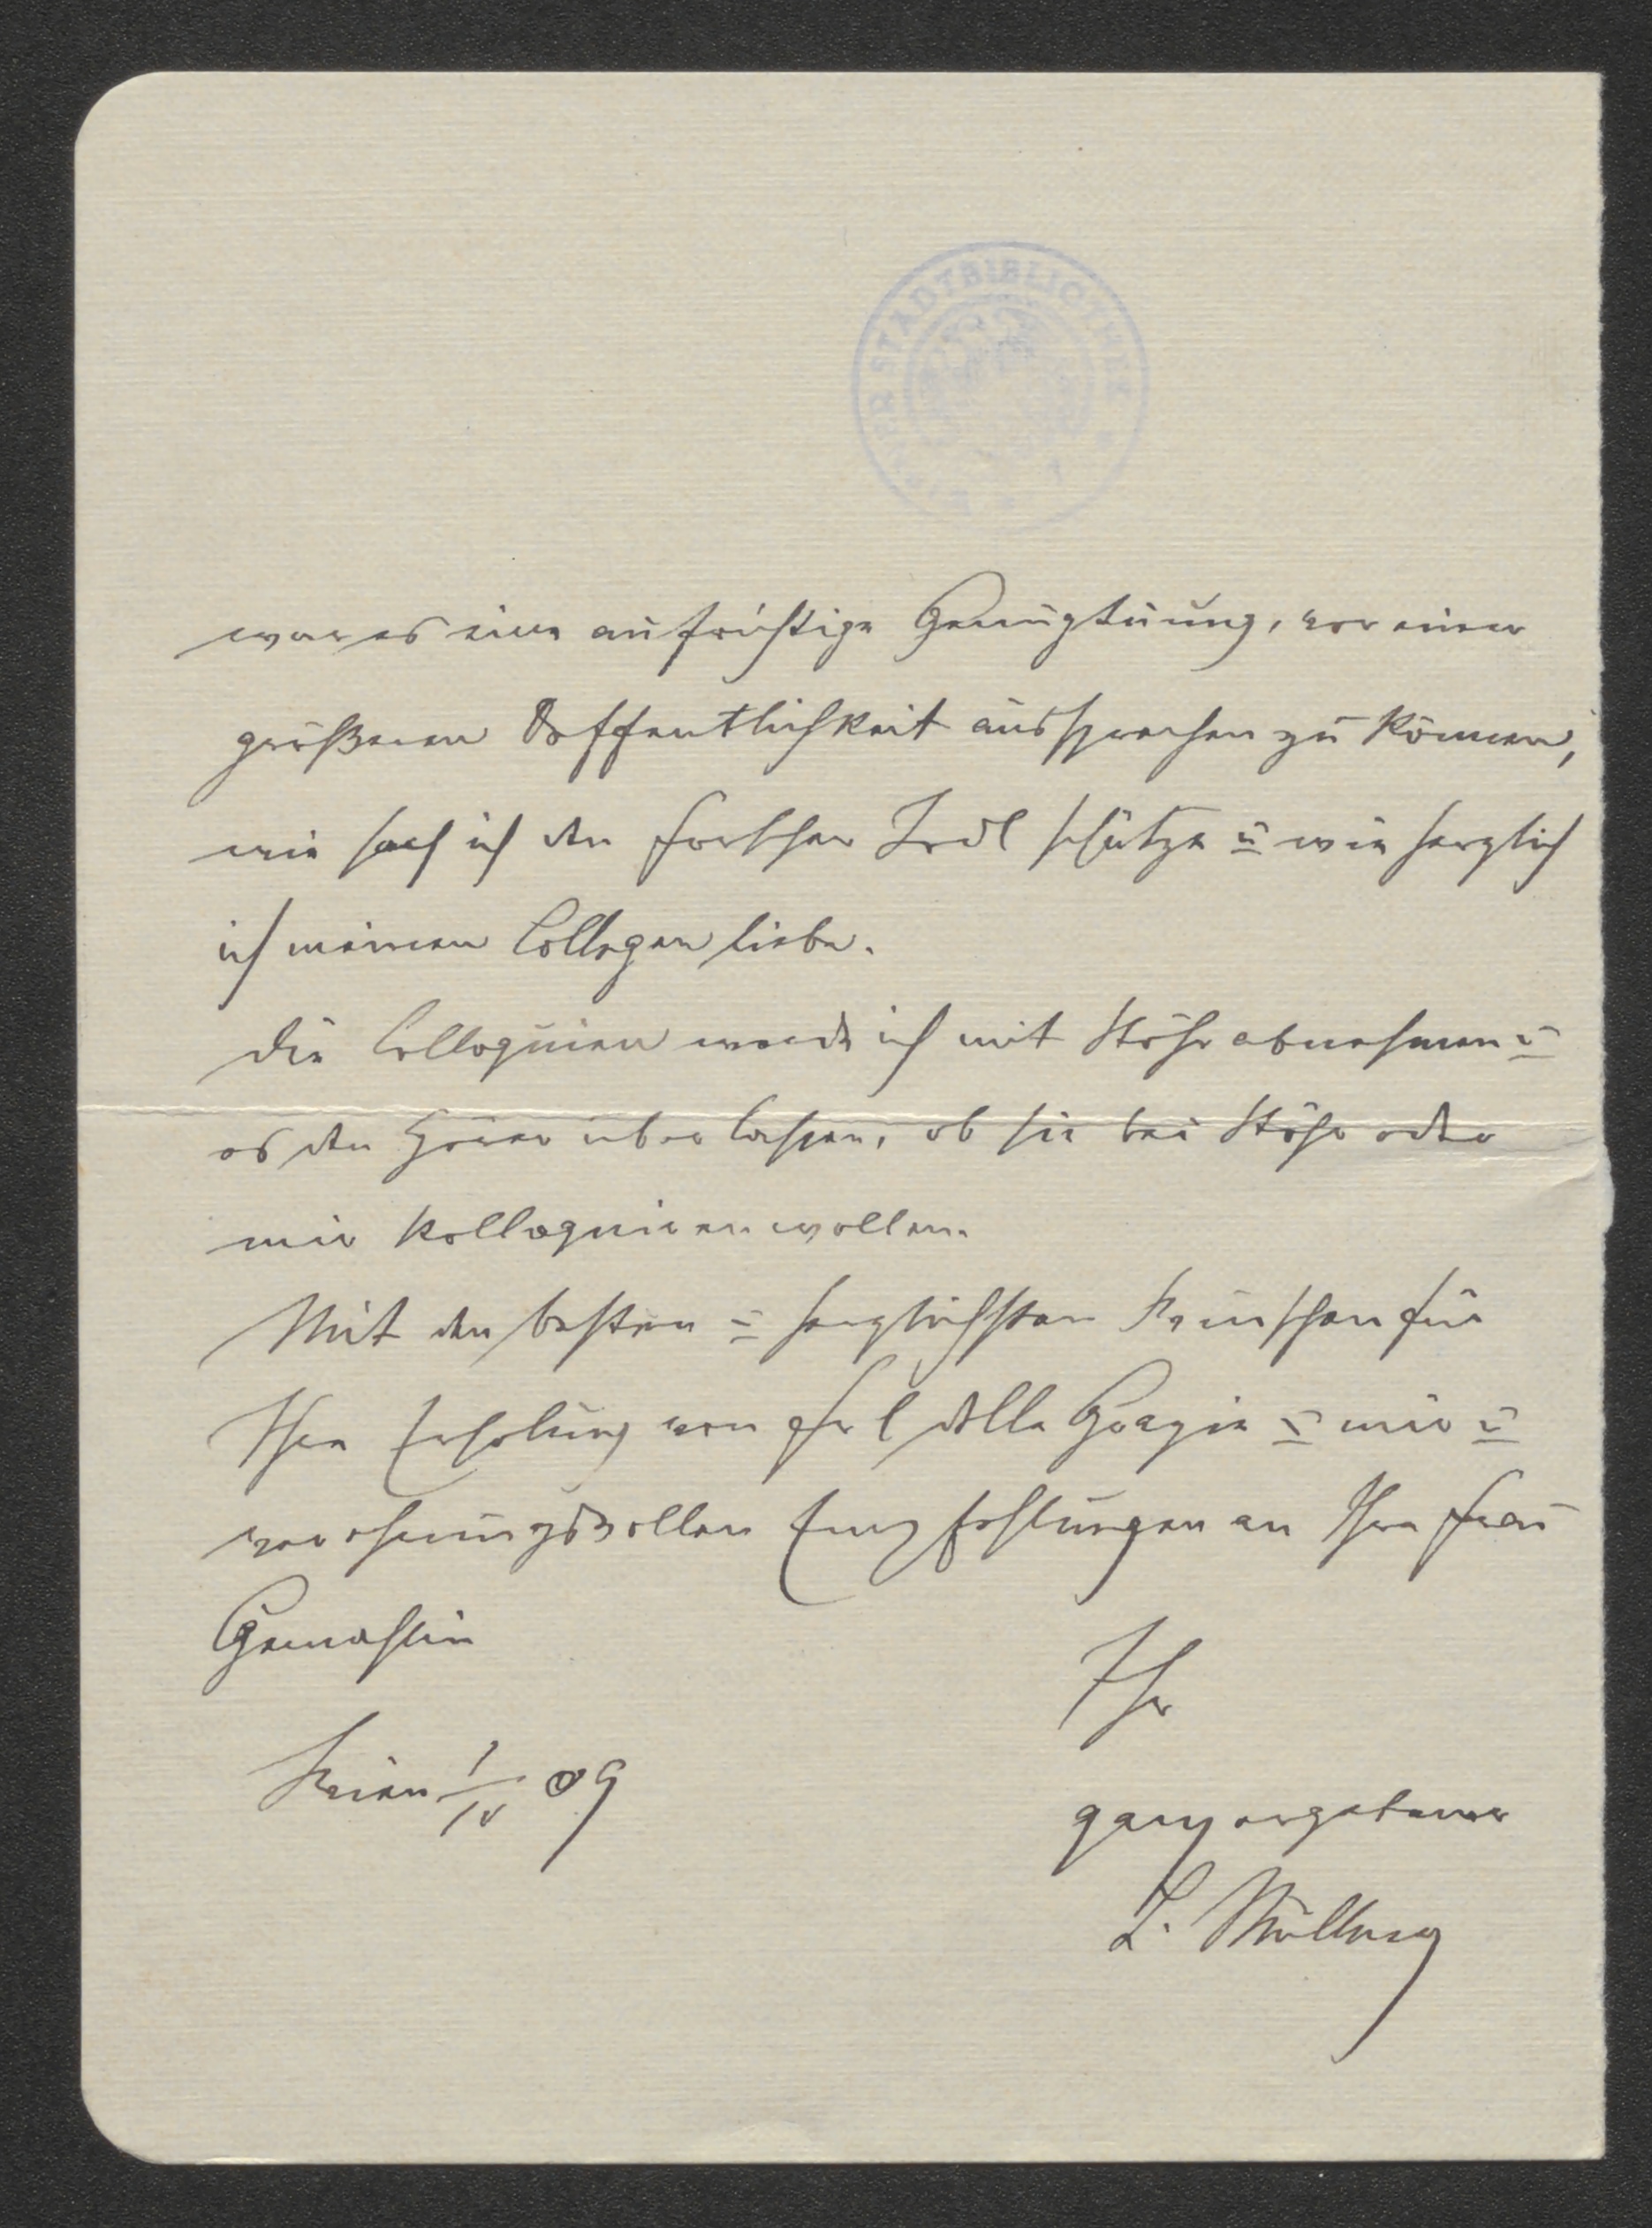 WIENER STADTBIBLIOTHEK
war es eine aufrichtige Genugtuung, vor einer
größeren Oeffentlichkeit aussprechen zu können,
wie hoch ich den Forscher Jodl schätze u wie herzlich
ich meinen Collegen liebe.
Die Colloquien werde ich mit Stöhr abnehmen u
es den Hörer überlassen, ob sie bei Stöhr oder
mir kolloquieren wollen.
Mit den besten u herzlichsten Wünschen für
Ihre Erholung von Frl delle Grazie u mir u
verehrungsvollen Empfehlungen an Ihre Frau
Gemahlin
Ihr
Wien 1/IV 09
ganz ergebener
L. Müllner